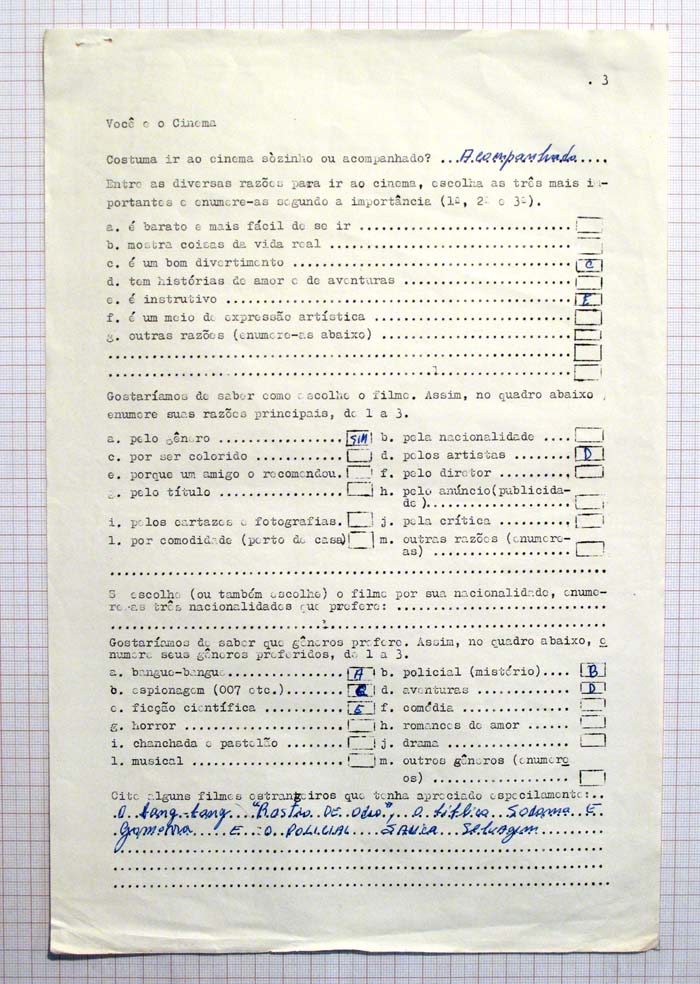 . 3
Você e o Cinema
Costuma ir ao cinema sòzinho ou acompanhado? ...Acompanhado....
Entre as diversas razões para ir ao cinema, escolha as três mais im-
portantes e enumere-as segundo a importância (1ª, 2ª e 3ª).
a. é barato e mais fácil de se ir
b. mostra coisas da vida real
c. é um bom divertimento C
d. tem histórias de amor e de aventuras
e. é instrutivo E
f. é um meio de expressão artística
g. outras razões (enumere-as abaixo)
Gostaríamos de saber como escolhe o filme. Assim, no quadro abaixo,
enumere suas razões principais, de 1 a 3.
a. pelo gênero SIM b. pela nacionalidade
c. por ser colorido d. pelos artistas D
e. porque um amigo o recomendou. f. pelo diretor
g. pelo título h. pelo anúncio(publicida-
de)
i. pelos cartazes e fotografias. j. pela crítica
l. por comodidade (perto de casa) m. outras razões (enumere-
as)
S escolhe (ou também escolhe) o filme por sua nacionalidade, enume-
re-as três nacionalidades que prefere:
Gostaríamos de saber que gêneros prefere. Assim, no quadro abaixo, e
numere seus gêneros preferidos, de 1 a 3.
a. bangue-bangue A b. policial (mistério) B
b. espionagem (007 etc.) d. aventuras D
e. ficção científica E f. comédia
g. horror h. romances de amor
i. chanchada e pastelão j. drama
l. musical m. outros gêneros (enumere
os)
Cite alguns filmes estrangeiros que tenha apreciado especilamente:
O bang-bang "Rastro DE ódio", o bíblico Sodoma E
Gomorra E O POLICIAL Selvagem